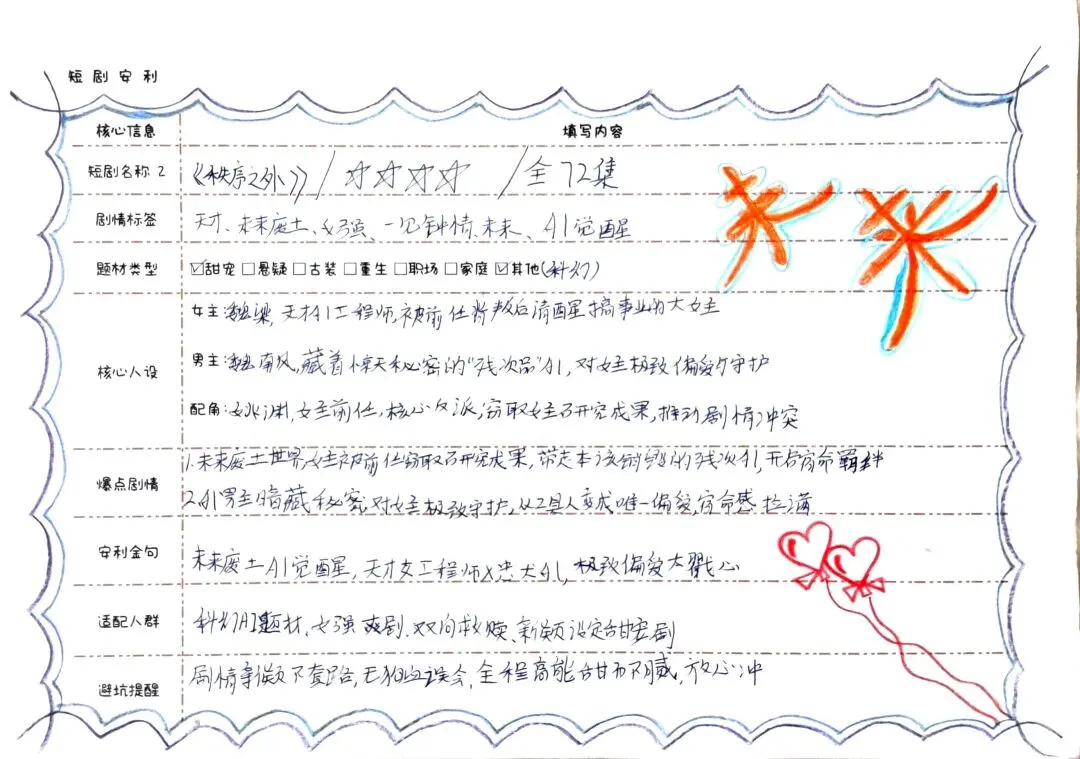 短剧安利
核心信息 填写内容
短剧名称 2 《秩序之外》/☆☆☆☆/全72集
剧情标签 天才、未来废土、女强、一见钟情、未来、AI觉醒
题材类型 ☑甜宠 □悬疑 □古装 □重生 □职场 □家庭 ☑其他(科幻)
核心人设
女主:梁,天才AI工程师,被前任背叛后清醒搞事业的大女主
男主:南风,藏着惊天秘密的"残次品"AI,对女主极致偏爱守护
配角:姚渊,女主前任,核心反派,窃取女主研究成果,推动剧情冲突
爆点剧情
1.未来废土世界,女主被前任窃取研究成果,带走本该销毁的残次AI,开启宿命羁绊
2.AI男主暗藏秘密,对女主极致守护,从工具人变成唯一偏爱,宿命感拉满
安利金句 未来废土AI觉醒,天才女工程师x忠犬AI,极致偏爱太戳心
适配人群 科幻AI题材、女强爽剧、双向救赎、新颖设定甜宠剧
避坑提醒 剧情新颖不套路,无狗血误会,全程高能甜而不腻,放心冲